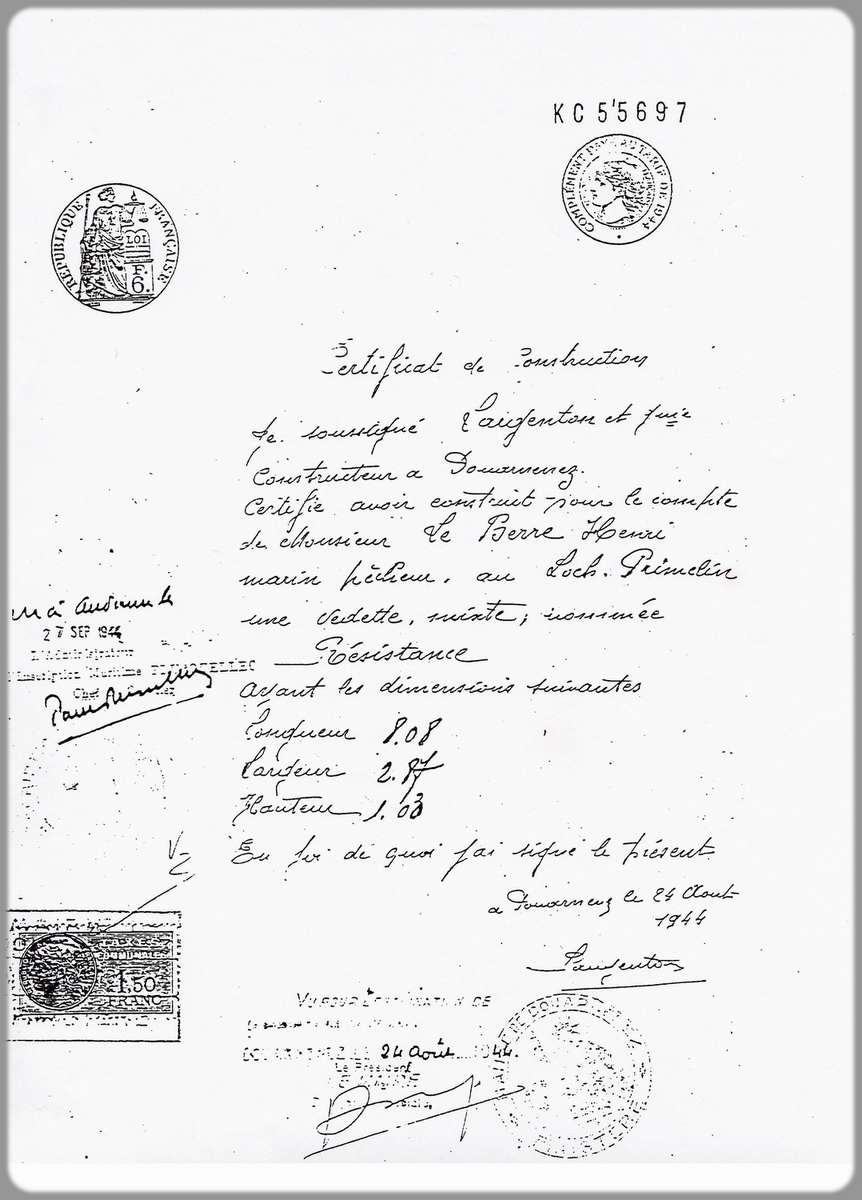 KC 55697
COMPLÉMENT PAYÉ AU TARIF DE 1944
RÉPUBLIQUE FRANÇAISE
LOI
F.
6.
Certificat de Construction
Je soussigné Laugenton et
Constructeur a Douarnenez.
Certifie avoir construit pour le compte
de Monsieur Le Berre Henri
marin pêcheur, au Loch. Primelin
une vedette, mixte, nommée
Résistance
Ayant les dimensions suivantes
Longueur 8.08
Largeur 2.87
Hauteur 1.03
En foi de quoi j'ai signé le présent
a Douarnenez le 24 Aout
1944
Laugenton
Vu à Audierne le
27 SEP 1944
L'Administrateur
l'Inscription Maritime
Chef
1,50
FRANC
VU POUR LÉGALISATION DE
24 Août 1944.
Le Président